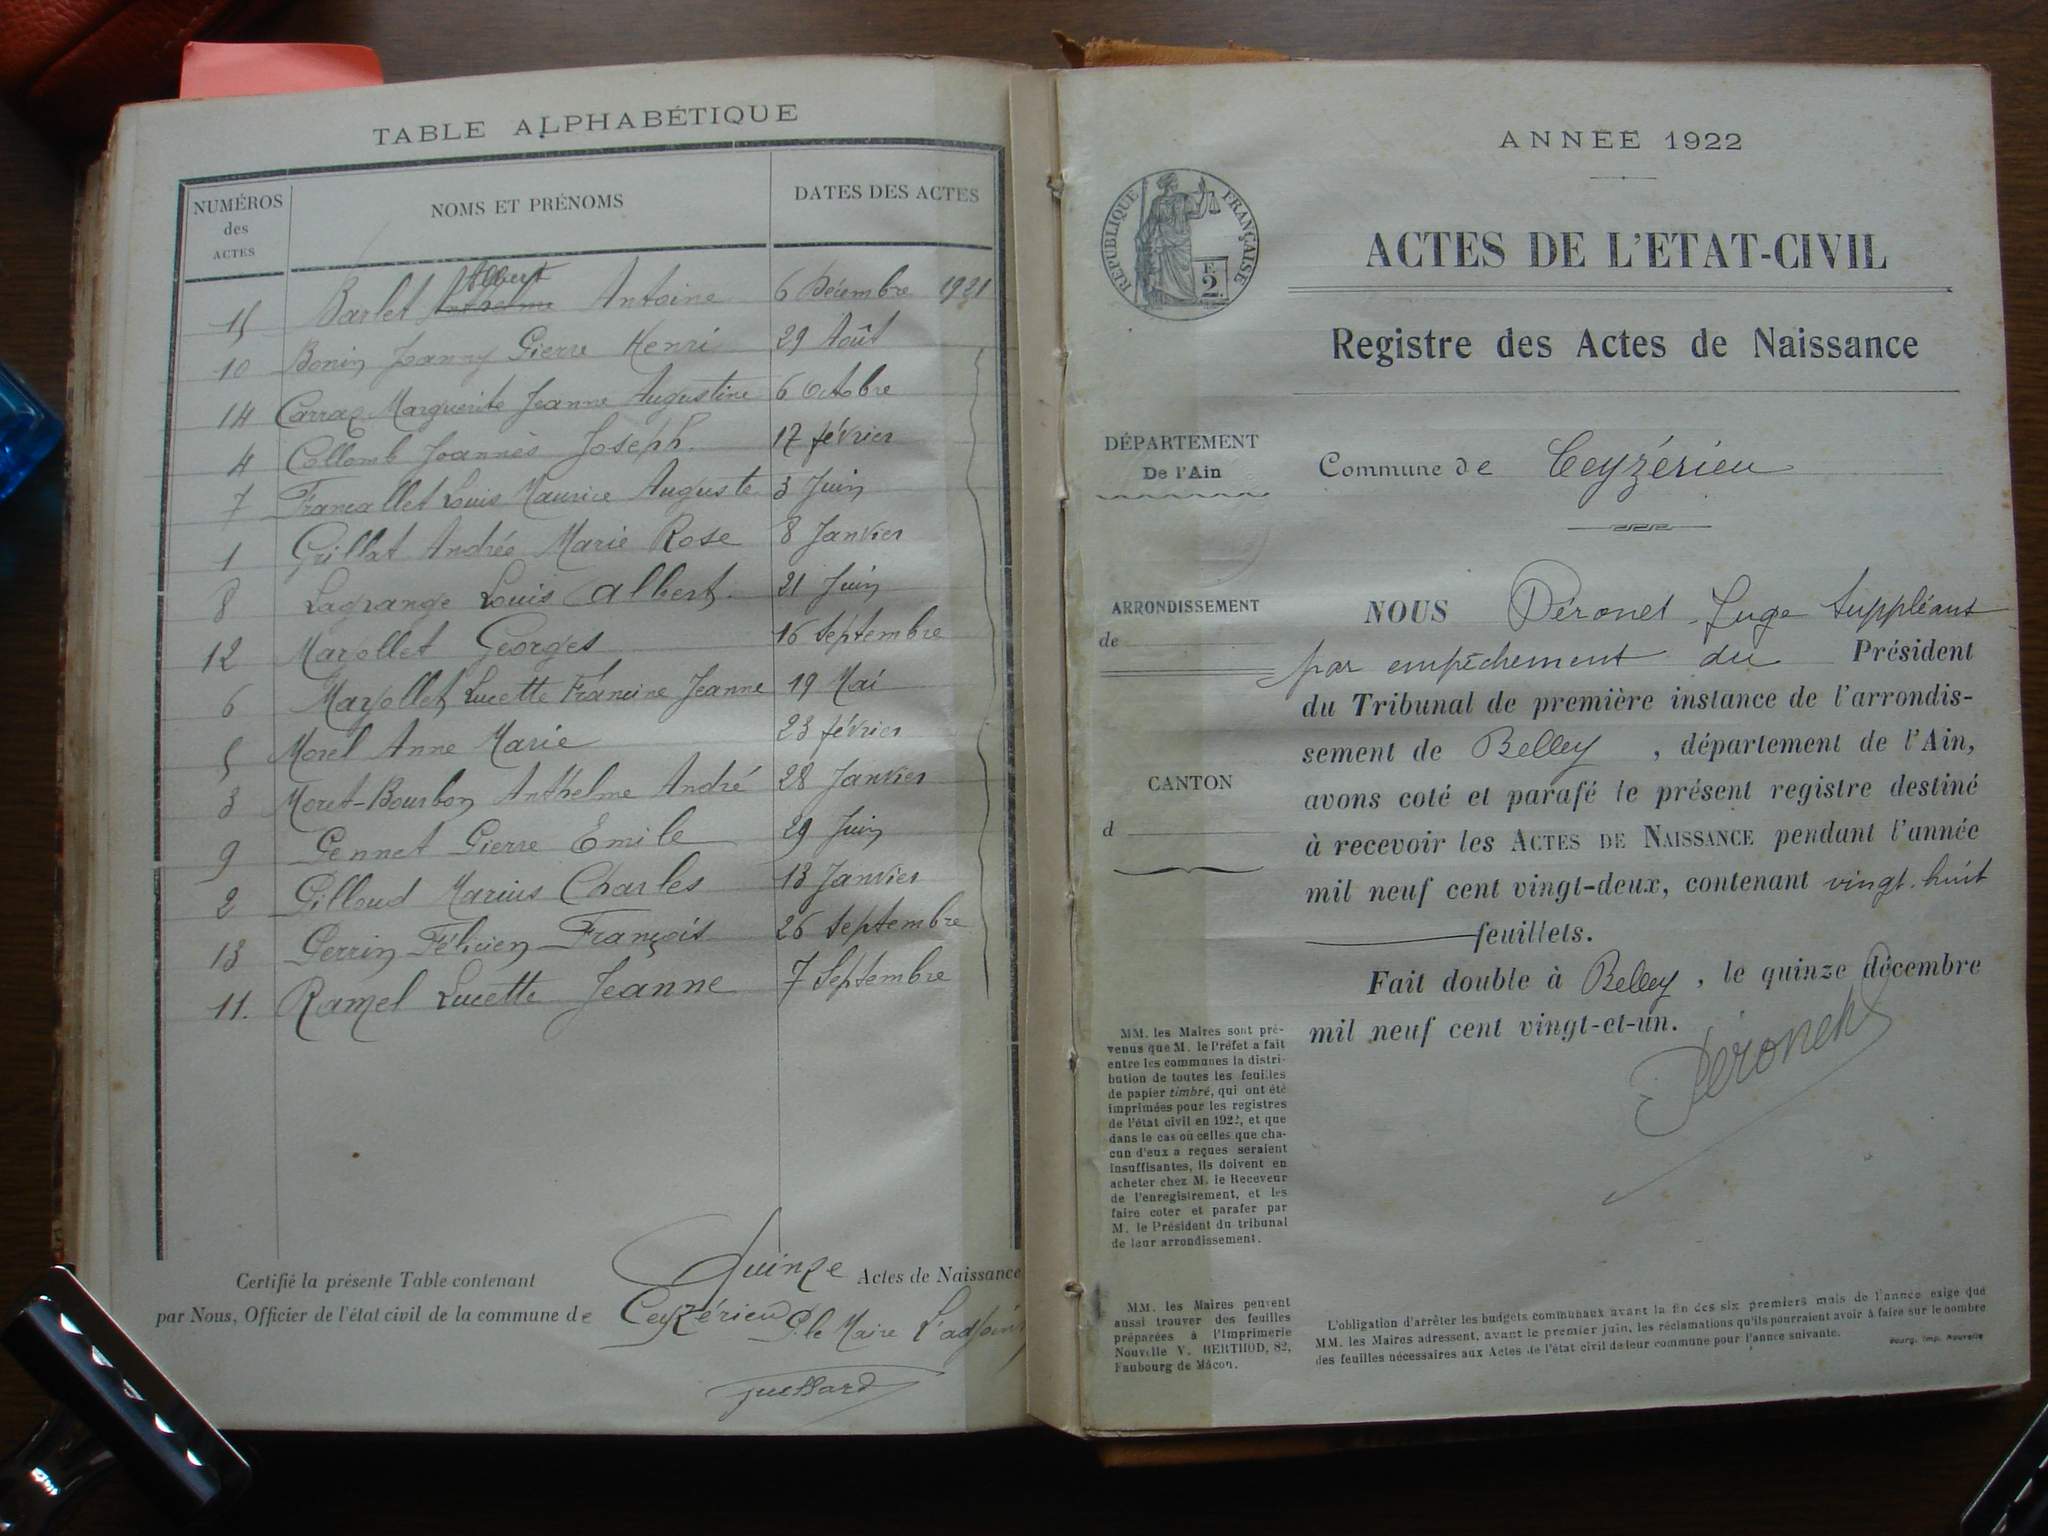 TABLE ALPHABÉTIQUE
NUMÉROS des ACTES
NOMS ET PRÉNOMS
DATES DES ACTES
Albert
15 Barlet Anthelme Antoine 6 Décembre 1921
10 Bonin Joanny Pierre Henri 29 Août
14 Carraz Marguerite Jeanne Augustine 6 Octobre
4 Collomb Joannès Joseph. 17 février
7 Francallet Louis Maurice Auguste 3 Juin
1 Grillat Andrée Marie Rose 8 Janvier
8 Lagrange Louis Albert. 21 Juin
12 Mayollet Georges 16 Septembre
6 Mayollet Lucette Francine Jeanne 19 Mai
5 Morel Anne Marie 23 février
3 Moret-Bourbon Anthelme André 28 Janvier
9 Pennet Pierre Emile 29 Juin
2 Pilloud Marius Charles 13 Janvier
13 Perrin Félicien François 26 Septembre
11. Ramel Lucette Jeanne 7 Septembre
Certifié la présente Table contenant Quinze Actes de Naissance
par Nous, Officier de l'état civil de la commune de Ceyzérieu P. le Maire L'adjoint
ANNÉE 1922
RÉPUBLIQUE FRANÇAISE
2
ACTES DE L'ETAT-CIVIL
Registre des Actes de Naissance
DÉPARTEMENT
De l'Ain
Commune de Ceyzérieu
ARRONDISSEMENT
de
CANTON
d
NOUS Péronet Juge Suppléant
par empêchement du Président
du Tribunal de première instance de l'arrondis-
sement de Belley, département de l'Ain,
avons coté et parafé le présent registre destiné
à recevoir les ACTES DE NAISSANCE pendant l'année
mil neuf cent vingt-deux, contenant vingt-huit
feuillets.
Fait double à Belley, le quinze décembre
mil neuf cent vingt-et-un.
Péronet
MM. les Maires sont pré-
venus que M. le Préfet a fait
entre les communes la distri-
bution de toutes les feuilles
de papier timbré, qui ont été
imprimées pour les registres
de l'état civil en 1922, et que
dans le cas où celles que cha-
cun d'eux a reçues seraient
insuffisantes, ils doivent en
acheter chez M. le Receveur
de l'enregistrement, et les
faire coter et parafer par
M. le Président du tribunal
de leur arrondissement.
MM. les Maires peuvent
aussi trouver des feuilles
préparées à l'Imprimerie
Nouvelle V. BERTHOD, 82,
Faubourg de Mâcon.
L'obligation d'arrêter les budgets communaux avant la fin des six premiers mois de l'année exige que
MM. les Maires adressent, avant le premier juin, les réclamations qu'ils pourraient avoir à faire sur le nombre
des feuilles nécessaires aux Actes de l'état civil de leur commune pour l'année suivante.
Bourg, Imp. Nouvelle